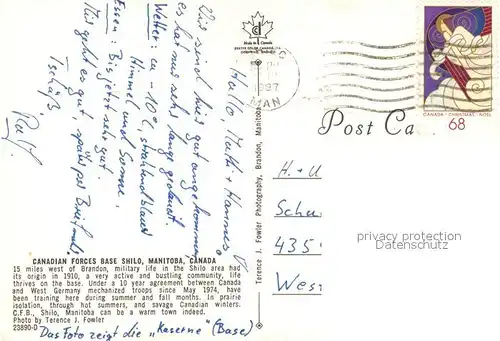 Hallo, Mutti + Hannes,
Wir sind hier gut angekommen,
es hat nur sehr lange gedauert.
Wetter: ca. -10°C, strahlend blauer
Himmel und Sonne.
Essen: Bis jetzt sehr gut.
Mir geht es gut, später per Brief mehr.
Tschüß,
CANADIAN FORCES BASE SHILO, MANITOBA, CANADA
15 miles west of Brandon, military life in the Shilo area had
its origin in 1910, a very active and bustling community, life
thrives on the base. Under a 10 year agreement between Canada
and West Germany mechanized troops since May 1974, have
been training here during summer and fall months. In prairie
isolation, through hot summers, and savage Canadian winters.
C.F.B., Shilo, Manitoba can be a warm town indeed.
Photo by Terence J. Fowler
23890-D
Das Foto zeigt die "Kaserne" (Base)
Made in Canada
Terence J. Fowler Photography, Brandon, Manitoba
1987
MAN
CANADA · CHRISTMAS · NOEL
68
Post Ca
H. + U
Scha
435
Wes
privacy protection
DatenSchutz